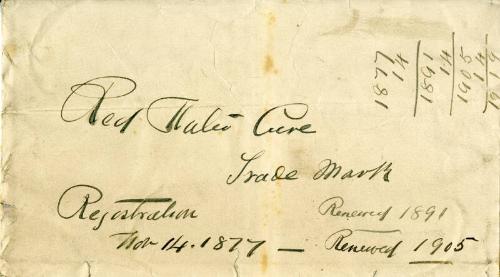 Red Cure
Trade Mark
Registration
Renewed 1891
Nov 14. 1877 — Renewed 1905
1877
14
1891
14
1905
14
1919